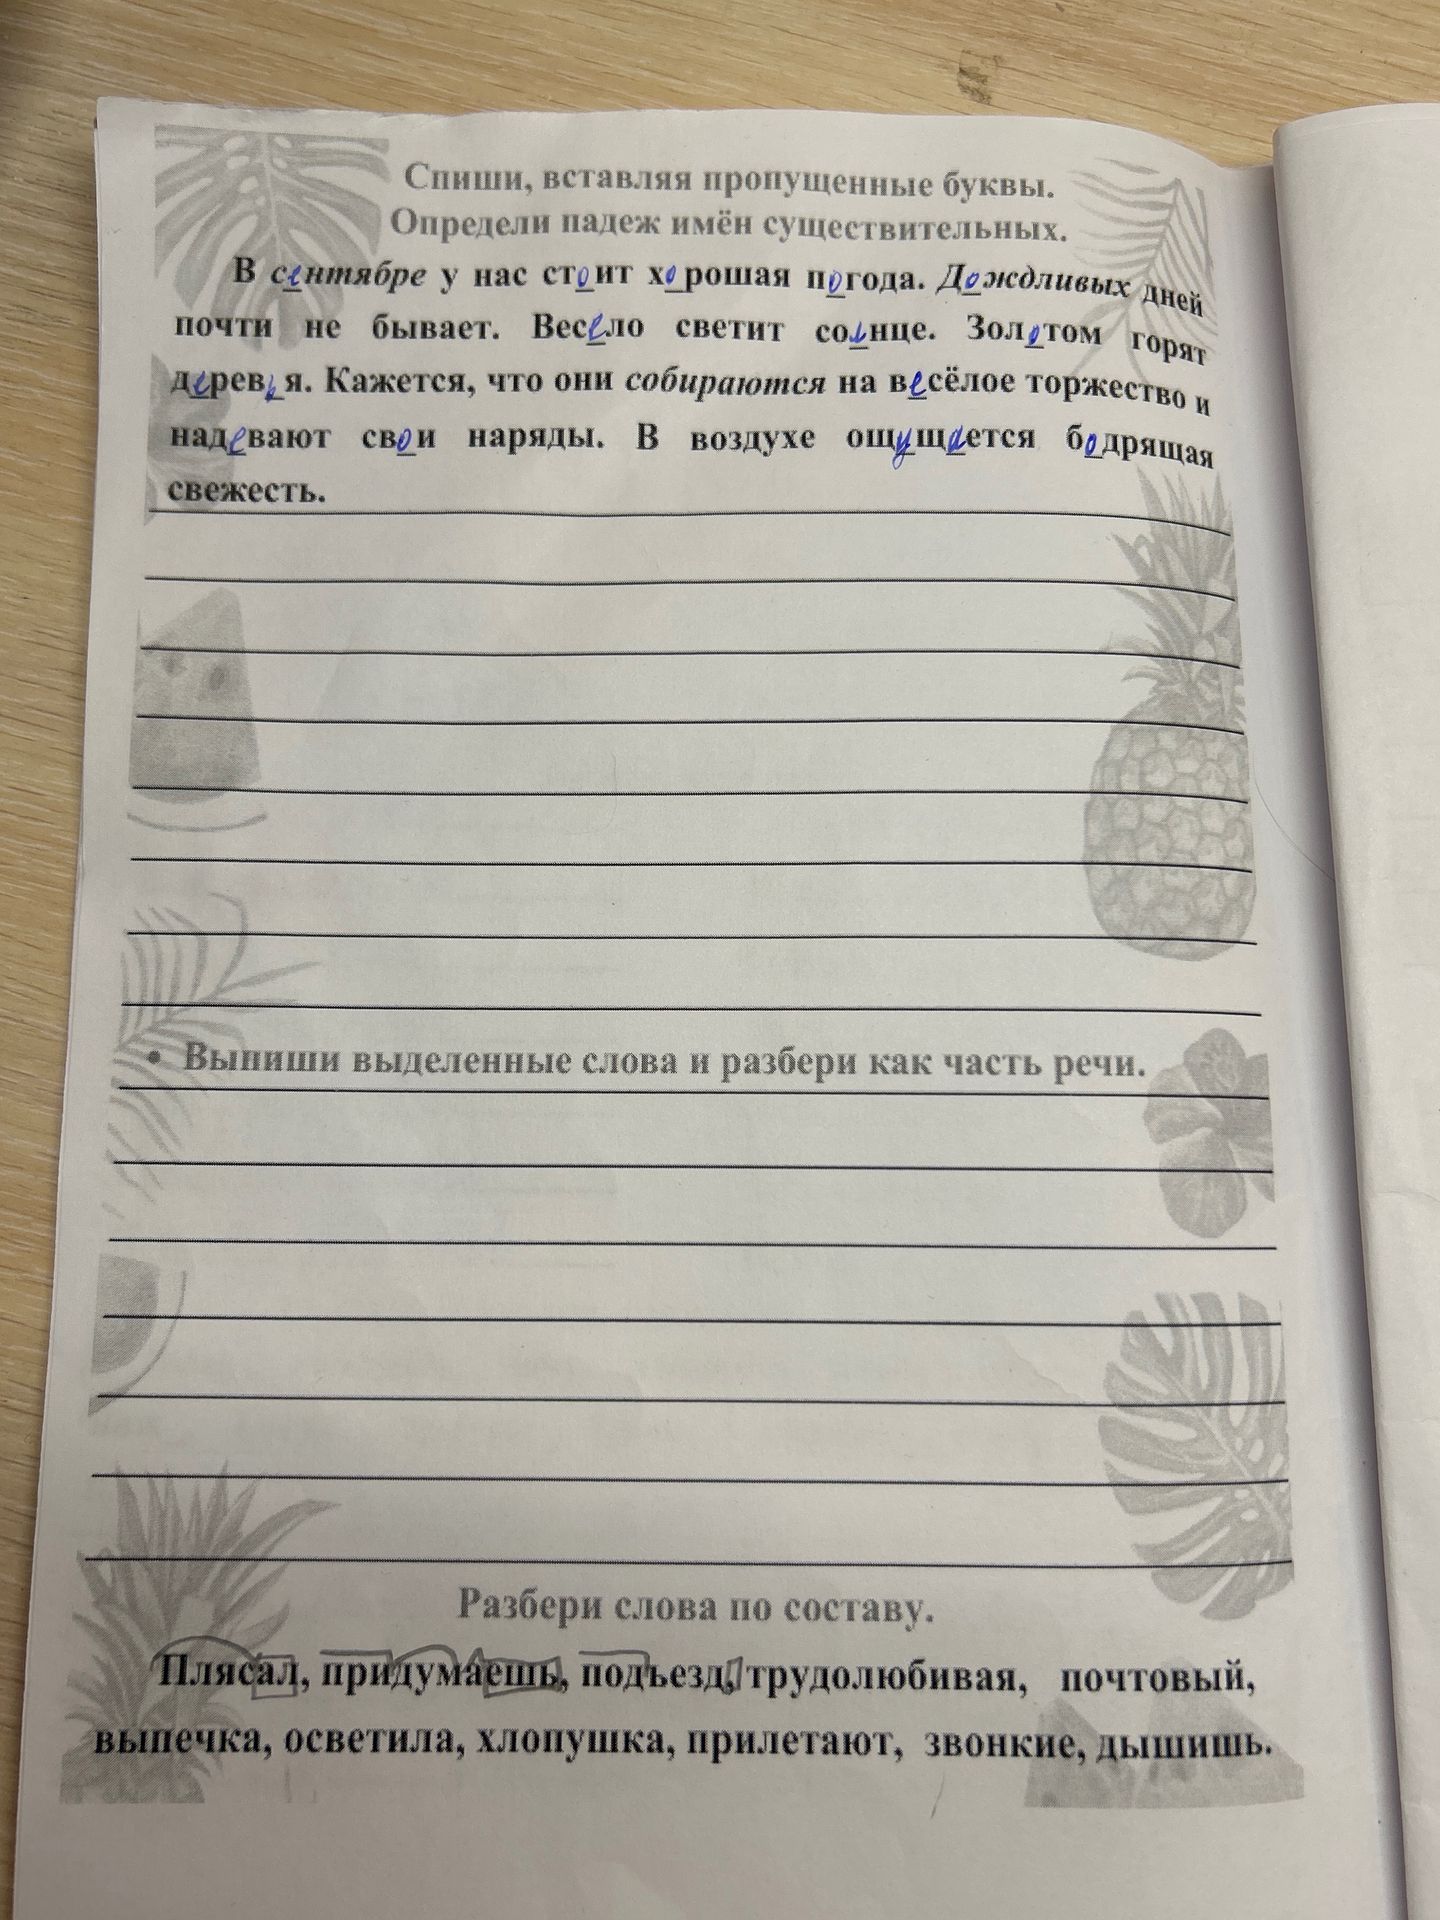 Спиши, вставляя пропущенные буквы.
Определи падеж имён существительных.
В сентябре у нас стоит хорошая погода. Дождливых дней
почти не бывает. Весело светит солнце. Золотом горят
деревья. Кажется, что они собираются на весёлое торжество и
надевают свои наряды. В воздухе ощущается бодрящая
свежесть.
• Выпиши выделенные слова и разбери как часть речи.
Разбери слова по составу.
Плясал, придумаешь, подъезд, трудолюбивая, почтовый,
выпечка, осветила, хлопушка, прилетают, звонкие, дышишь.